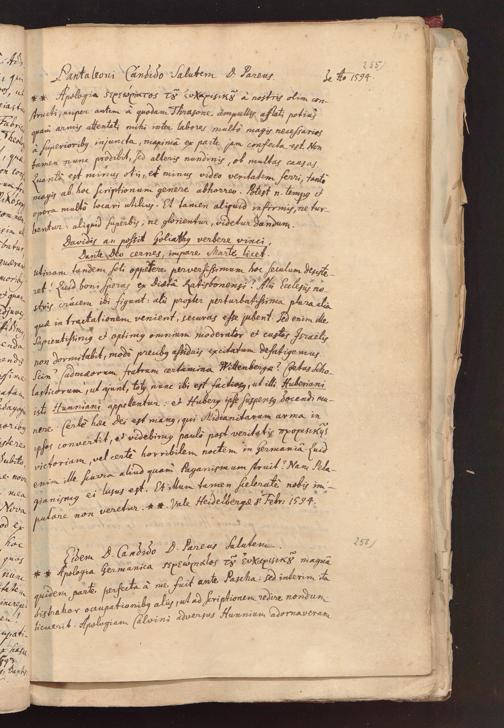 255/
Pantaleoni Candido Salutem D. Pareus. 
de Ao 1594.
** Apologia στερεώματος τοῦ εὐχαριστικοῦ à nostris olim con-
structi, nuper autem à quodam Thrasone, dompullis afflati, potius
quam armis attentati, mihi inter labores multò magis necessarios
à superioribus injuncta, maximâ ex parte jam confecta est. Non
tamen nunc prodibit, sed alteris nundinis, ob multas causas.
Quantò est minus otii, et minus video veritatem ferri, tantò
magis ab hoc scriptionum genere abhorreo. Potest n. tempus et
opera multò locari utilius. Et tamen aliquid infirmis, ne tur-
bentur: aliquid superbis, ne glorientur, videtur dandum.
Davidis an possit Goliathus verbere vinci,
Dante Deo cernes, impare Marte licet.
utinam tandem soli oppetere perversissimum hoc seculum desiste-
ret! Quid boni speras ex diæta Ratisbonensi? Alii Ecclesiis no-
stris crucem ibi figunt: alii propter perturbatissima plura alia
quæ in tractationem venient, securos esse jubent. Sed enim ille
sapientissimus et optimus omnium moderator et custos Israelis
non dormitabit, modò precibus assiduis excitatum defatigemus.
Scin' Cadmæorum fratrum certamina Wittenbergæ? Cætus scho-
lasticorum, ut ajunt, totus nunc ibi est factiosus, ut illi Huberiani
isti Hunniani appellentur: et Huberus ipse suspensus docendi mu-
nere. Certè hæc dei est manus, qui Midianitarum arma in
ipsos convertit, et videbimus paulò post veritatis
victoriam, vel certè horribilem noctem in germania. Quid
enim ille furia aliud quàm Paganismum struit? Nam Pela-
gianismus ei lusus est. Et illum tamen sceleratè nobis im-
putare non veretur. ** Vale Heidelbergæ 8 Febr. 1594.
256/
Eidem D. Candido D. Pareus Salutem.
** Apologia Germanica στερεώματος τοῦ εὐχαριστικοῦ magnâ
quidem parte perfecta à me fuit ante Pascha: sed interim ita
distrahor occupationibus aliis, ut ad scriptionem redire nondum
licuerit. Apologiam Calvini adversus Hunnium adornaveram